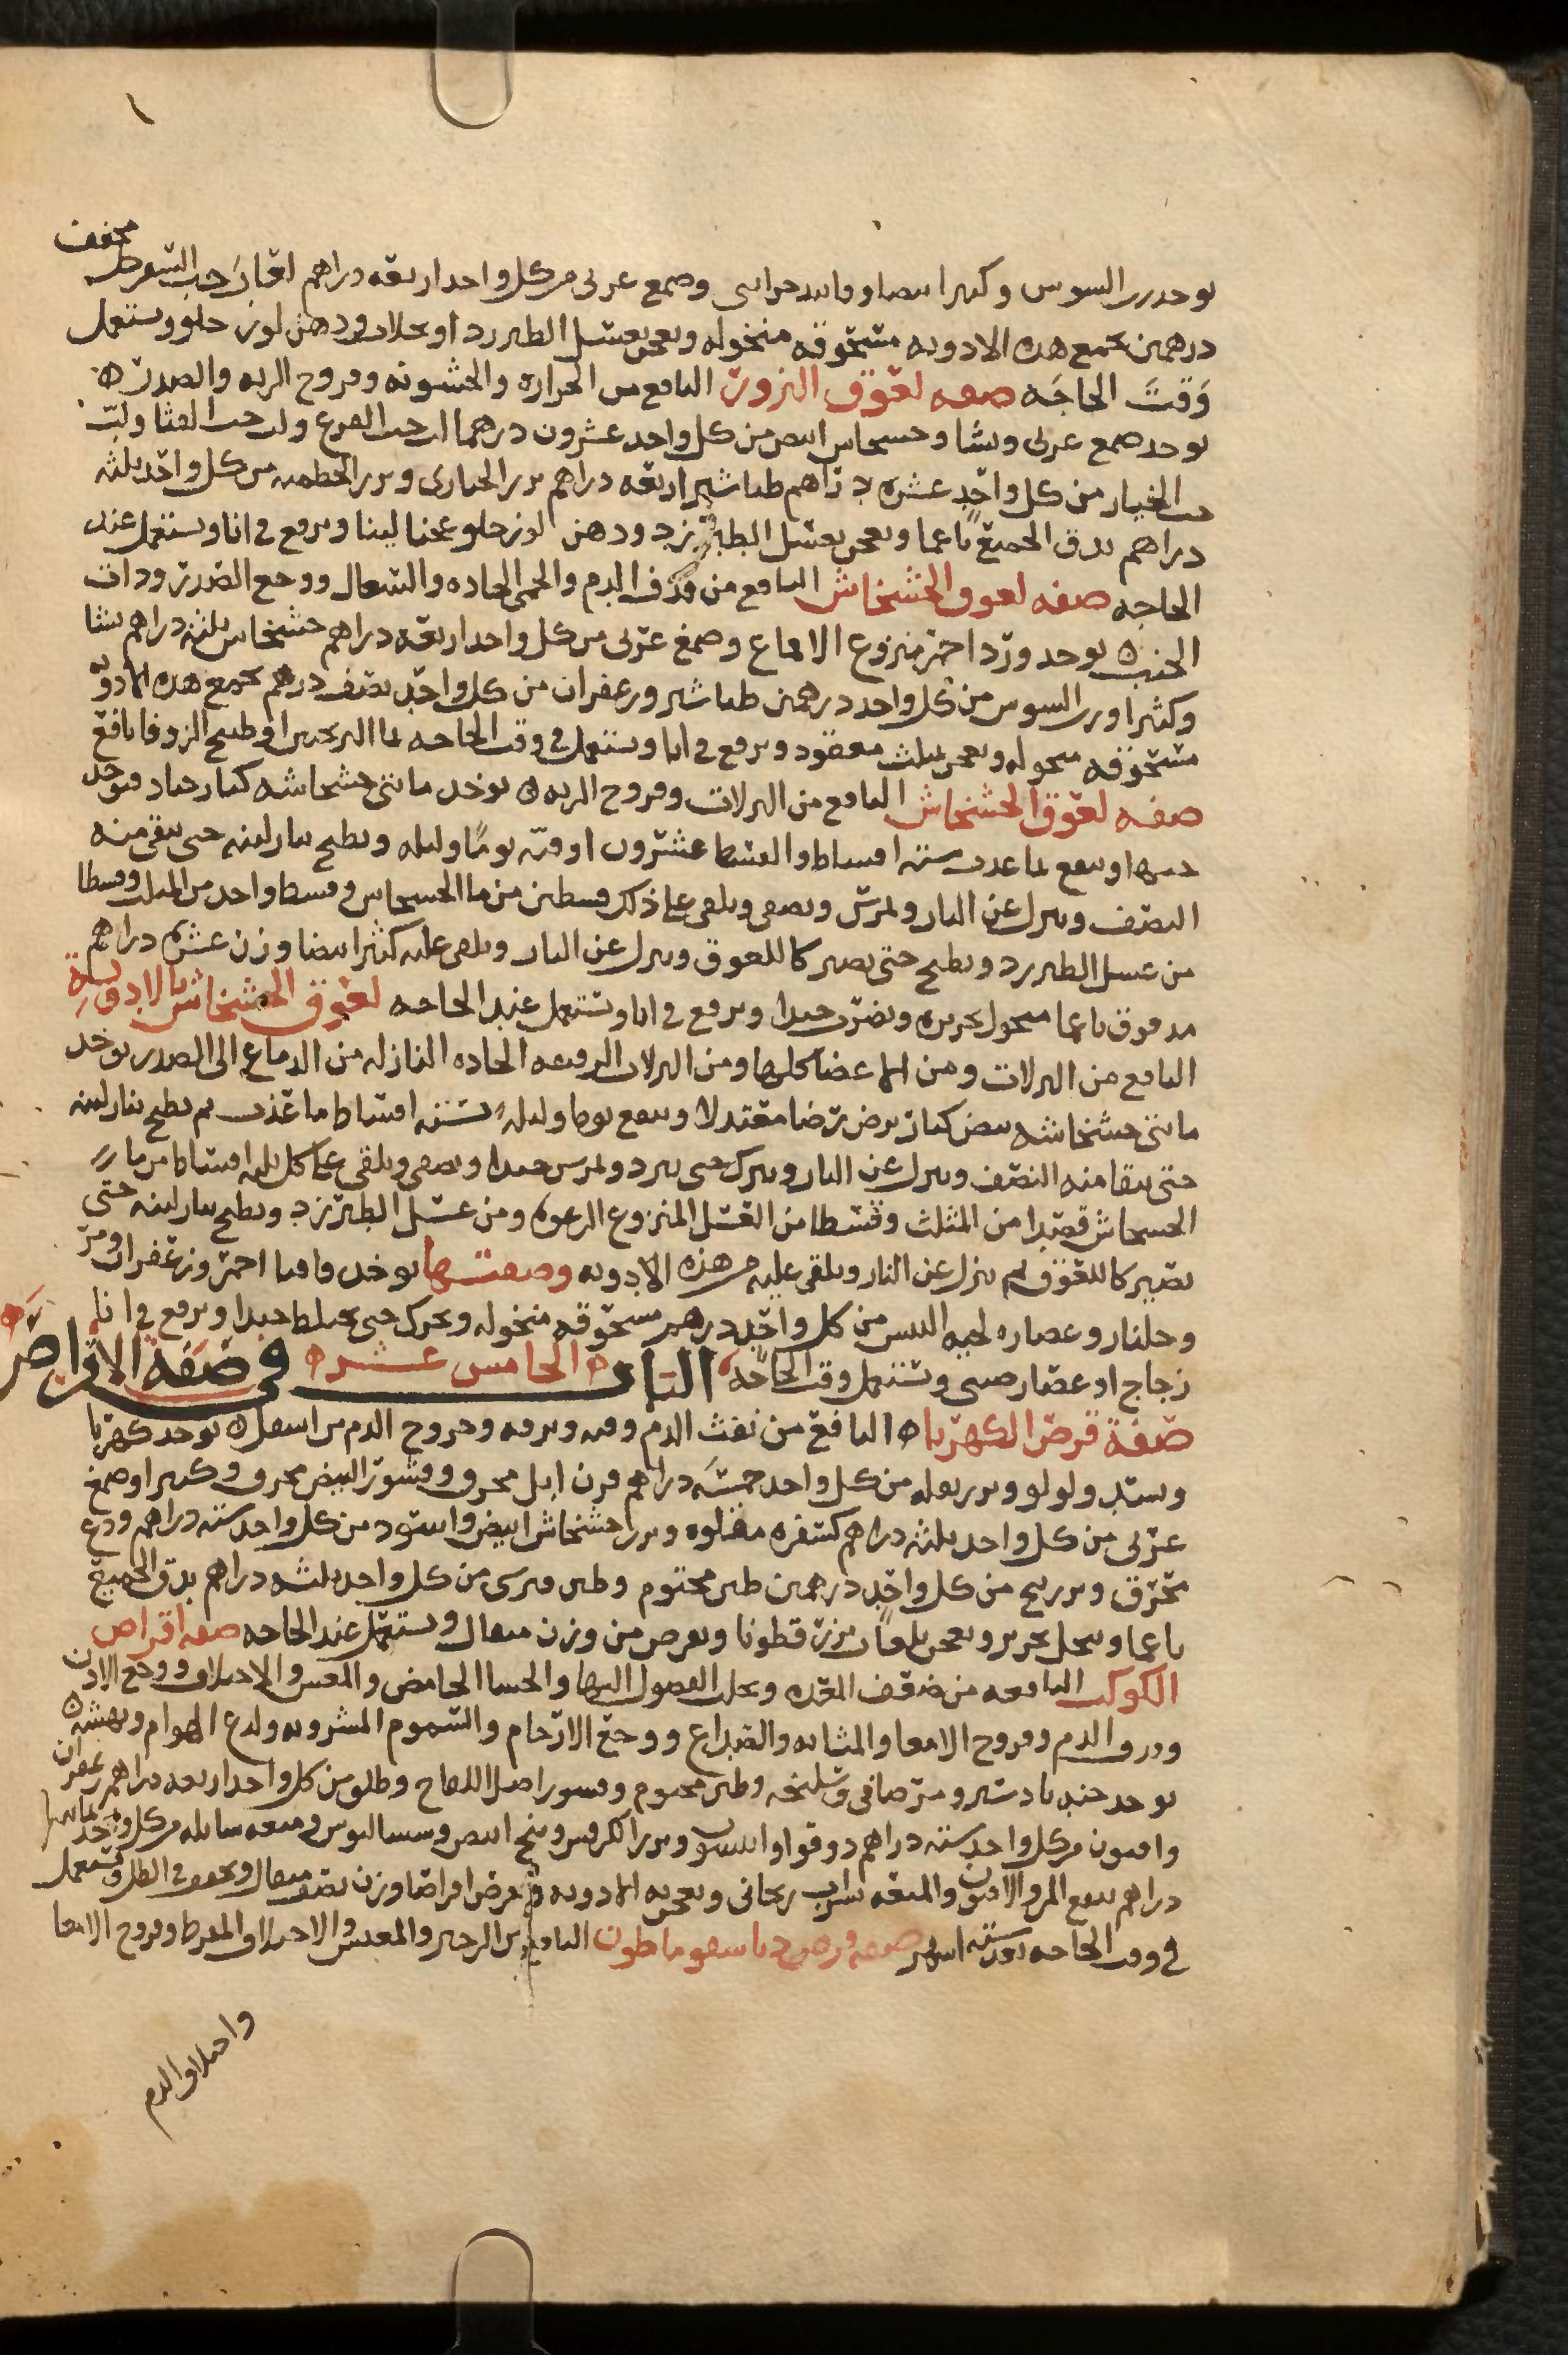 يوخذ رب السوس وكثيرا بيضا وفانيد خزاينى وصمغ عربى من كل واحد اربعه دراهم لعاب حب السفرجل مجفف
درهمين تجمع هذه الادويه مسحوقه منخوله وتعجن بعسل الطبرزد او بجلاب ودهن لوز حلو وتستعمل
وقت الحاجه صفه لعوق البزور النافع من الحراره والخشونه وقروح الريه والصدر ه
يوخذ صمغ عربى ونشا وخشخاش ابيض من كل واحد عشرون درهما لب حب القرع ولب حب القثا ولب
حب الخيار من كل واحد عشره دراهم طباشير اربعه دراهم بزر الخبازى وبزر الخطميه من كل واحد ثلثه
دراهم يدق الجميع ناعما ويعجن بعسل الطبرزد ودهن لوز حلو عجنا لينا ويرفع فى انا ويستعمل عند
الحاجه صفه لعوق الخشخاش النافع من قذف الدم والحمى الحاده والسعال ووجع الصدر وذات
الجنب ه يوخذ ورد احمر منزوع الاقماع وصمغ عربى من كل واحد اربعه دراهم خشخاش ثلثه دراهم نشا
وكثيرا ورب السوس من كل واحد درهمين طباشير وزعفران من كل واحد نصف درهم تجمع هذه الادويه
مسحوقه منخوله وتعجن بمثلث معقود ويرفع فى انا ويستعمل فى وقت الحاجه بما الترنجبين او طبيخ الزوفا نافع
صفه لعوق الخشخاش النافع من النزلات وقروح الريه ه يوخذ مائتى خشخاشه كبار جياد فيوخذ
حبها وينقع بما عذب سته اقساط والقسط عشرون اوقيه يوما وليله ويطبخ بنار لينه حتى يبقى منه
النصف وينزل عن النار ويمرس ويصفى ويلقى على ذلك قسطين من ما الخشخاش وقسط واحد من المثلث وقسطا
من عسل الطبرزد ويطبخ حتى يصير كاللعوق وينزل عن النار ويلقى عليه كثيرا بيضا وزن عشره دراهم
مدقوق ناعما منخول بحريره ويضرب جيدا ويرفع فى انا ويستعمل عند الحاجه لعوق الخشخاش بالادويه
النافع من النزلات ومن الاعضا كلها ومن النزلات الرقيقه الحاده النازله من الدماغ الى الصدر يوخذ
مائتى خشخاشه بيض كبار يرض رضا معتدلا وينقع يوما وليله بسته اقساط ما عذب ثم يطبخ بنار لينه
حتى يبقا منه النصف وينزل عن النار ويترك حتى يبرد ويمرس جيدا ويصفى ويلقى على كل ثلثه اقساط من ما
الخشخاش قسطا من المثلث وقسطا من العسل المنزوع الرغوه ومن عسل الطبرزد ويطبخ بنار لينه حتى
يصير كاللعوق ثم ينزل عن النار ويلقى عليه من هذه الادويه وصفتها يوخذ قاقيا احمر وزعفران ومر
وجلنار وعصاره لحيه التيس من كل واحد درهم مسحوقه منخوله ويحرك حتى يختلط جيدا ويرفع فى انا
زجاج او غضار صينى وتستعمل وقت الحاجه الباب الخامس عشره فى صفة الاقراص
صفة قرص الكهربا ه النافع من نفث الدم وقيه ونزفه وخروج الدم من اسفل ه يوخذ كهربا
وبسد ولولو وبزر بقله من كل واحد خمسه دراهم قرن ايل محرق وقشور البيض محرق وكثيرا وصمغ
عربى من كل واحد ثلثه دراهم كسفره مقلوه وبزر خشخاش ابيض واسود من كل واحد سته دراهم ودع
محرق وبزر بنج من كل واحد درهمين طين مختوم وطين قبرسى من كل واحد ثلثه دراهم يدق الجميع
ناعما وينخل بحرير ويعجن بلعاب بزر قطونا ويقرص من وزن مثقال ويستعمل عند الحاجه صفه اقراص
الكوكب النافعه من ضعف المعده وتحلب الفضول اليها والجشا الحامض والمغس والاختلاف ووجع الاذن
ودروا الدم وقروح الامعا والمثانه والصداع ووجع الارحام والسموم المشروبه ولدغ الهوام ونهشه ه
يوخذ جندبادستر ومر صافى وسليخه وطين مختوم وقشور اصل اللفاح وطلق من كل واحد اربعه دراهم زعفران
وافيون من كل واحد سته دراهم دوقوا وانيسون وبزر الكرفس وبنج ابيض وسساليوس وميعه سايله من كل واحد ثمانيه
دراهم ينقع المر والافيون والميعه بشراب ريحانى ويعجن به الادويه ويقرص اقراصا وزن نصف مثقال ويجفف فى الظل ويستعمل
فى وقت الحاجه بعد سته اشهر صفه قرص النافع من الزحير والمغس والاختلاف المفرط وقروح الامعا
واختلاف الدم